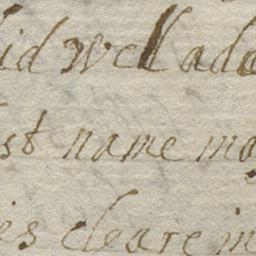 id well ad
st name ma
es cleare in